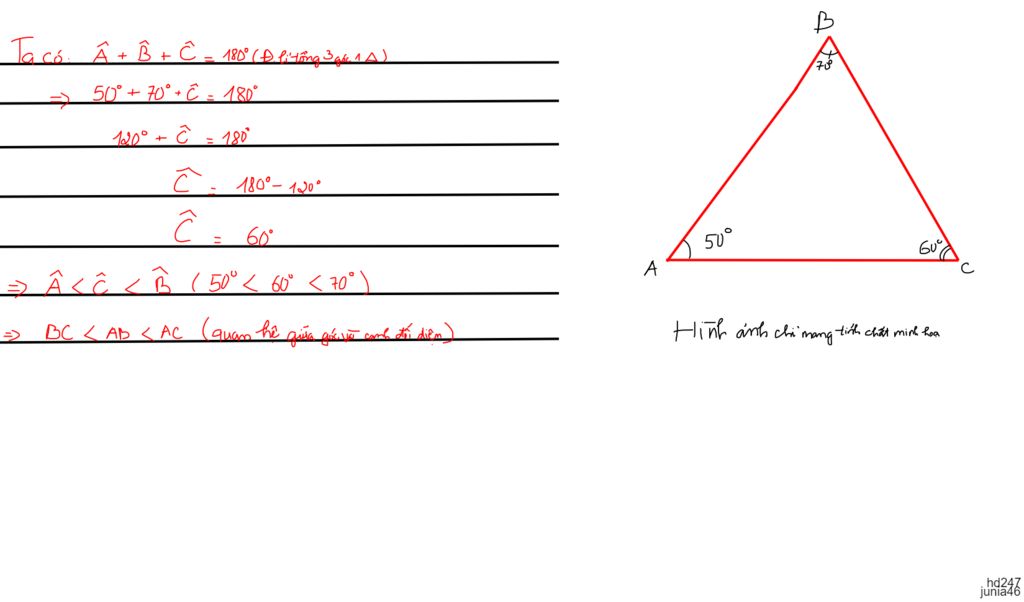 Ta có: Â + B̂ + Ĉ = 180° (Đ lí tổng 3 góc 1 Δ)
=> 50° + 70° + Ĉ = 180°
120° + Ĉ = 180°
Ĉ = 180° - 120°
Ĉ = 60°
=> Â < Ĉ < B̂ (50° < 60° < 70°)
=> BC < AB < AC (quan hệ giữa góc và cạnh đối diện)
B
70°
50°
60°
A
C
Hình ảnh chỉ mang tính chất minh họa
hd247
junia46